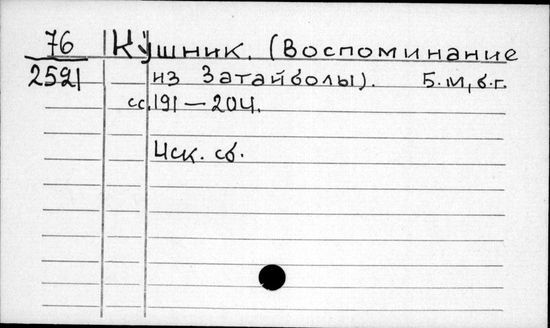 76 Кушник. (Воспоминание
2521 из Затайболы). Б.м, б.г.
сс.191 — 204.
Иск. сб.